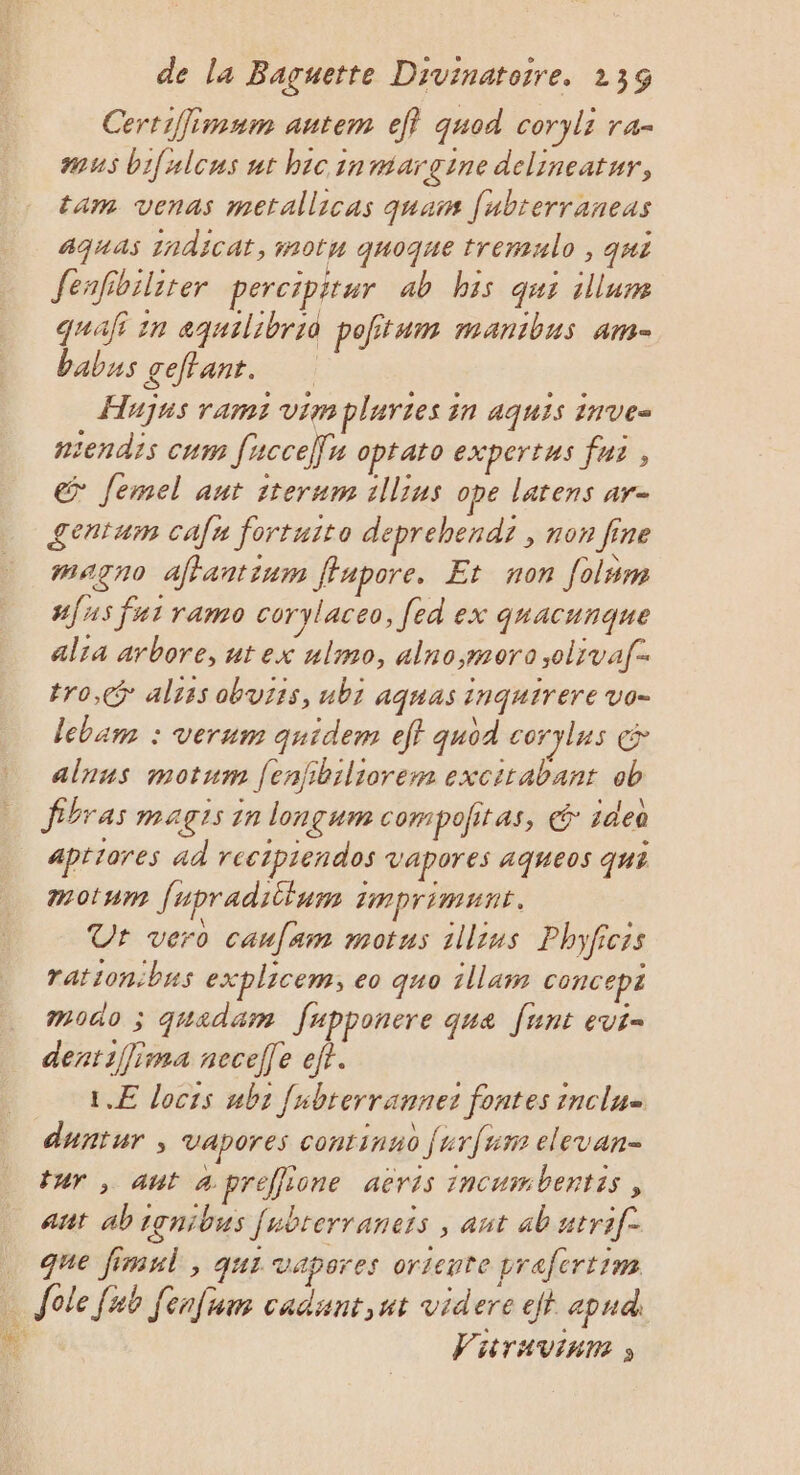 de la Baguette Divinatoire. 239
Certiſſimum autem eſt quod coryli ra-
mus bifulcus ut hic in margine delineatur,
tam venas metallicas quam ſubterraneas
aquas indicat, motu quoque tremulo , qui
ſenſibiliter percipitur ab his qui illum
quaſi in æquilibriò poſitum manibus am-
babus geſtant.
Hujus rami vim pluries in aquis inve-
niendis cum ſucceſſu optato expertus fui ,
& ſemel aut iterum illius ope latens ar-
gentum caſu fortuito deprehendi , non ſine
magno aſtantium ſtupore. Et non ſolùm
uſus fui ramo corylaceo, ſed ex quacunque
alia arbore, ut ex ulmo, alno,moro,olivaſ-
tro,& aliis obviis, ubi aquas inquirere vo-
lebam : verum quidem eſt quòd corylus &
alnus motum ſenſibiliorem excitabant ob
fibras magis in longum compoſitas, & ideò
aptiores ad recipiendos vapores aqueos qui
motum ſupradictum imprimunt.
Ut verò cauſam motus illius Phyſicis
rationibus explicem, eo quo illam concepi
modo ; quædam ſupponere quæ ſunt evi-
dentiſſima neceſſe eſt.
1.E locis ubi ſubterrannei fontes inclu-
duntur , vapores continuò ſurſum elevan-
tur , aut a preſſione aëris incumbentis ,
aut ab ignibus ſubterraneis , aut ab utriſ-
que ſimul , qui vapores oriente præſertim
ſole ſub ſenſum cadunt,ut videre eſt apud
Vitruvium ,